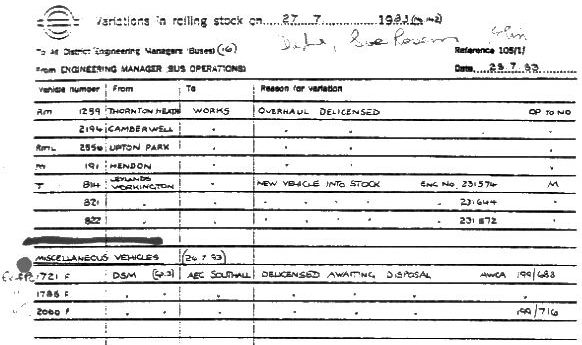 Variations in rolling stock on 27 7 1983
To All District Engineering Managers (Buses) (16) Reference 105/1/
From ENGINEERING MANAGER (BUS OPERATIONS) Date 25.7.83
Vehicle number From To Reason for variation
RM 1259 THORNTON HEATH WORKS OVERHAUL DELICENSED OP TO NO
2194 CAMBERWELL " " " "
RML 2556 UPTON PARK " " " "
M 191 HENDON " " " "
T 814 LEYLANDS WORKINGTON " NEW VEHICLE INTO STOCK ENG No. 231574 M
821 " " " " " " 231644 "
822 " " " " " " 231572 "
MISCELLANEOUS VEHICLES (26.7.83)
1721 F DSM AEC SOUTHALL DELICENSED AWAITING DISPOSAL AWCA 199/688
1785 F " " " " " " "
2060 F " " " " " " 199/716